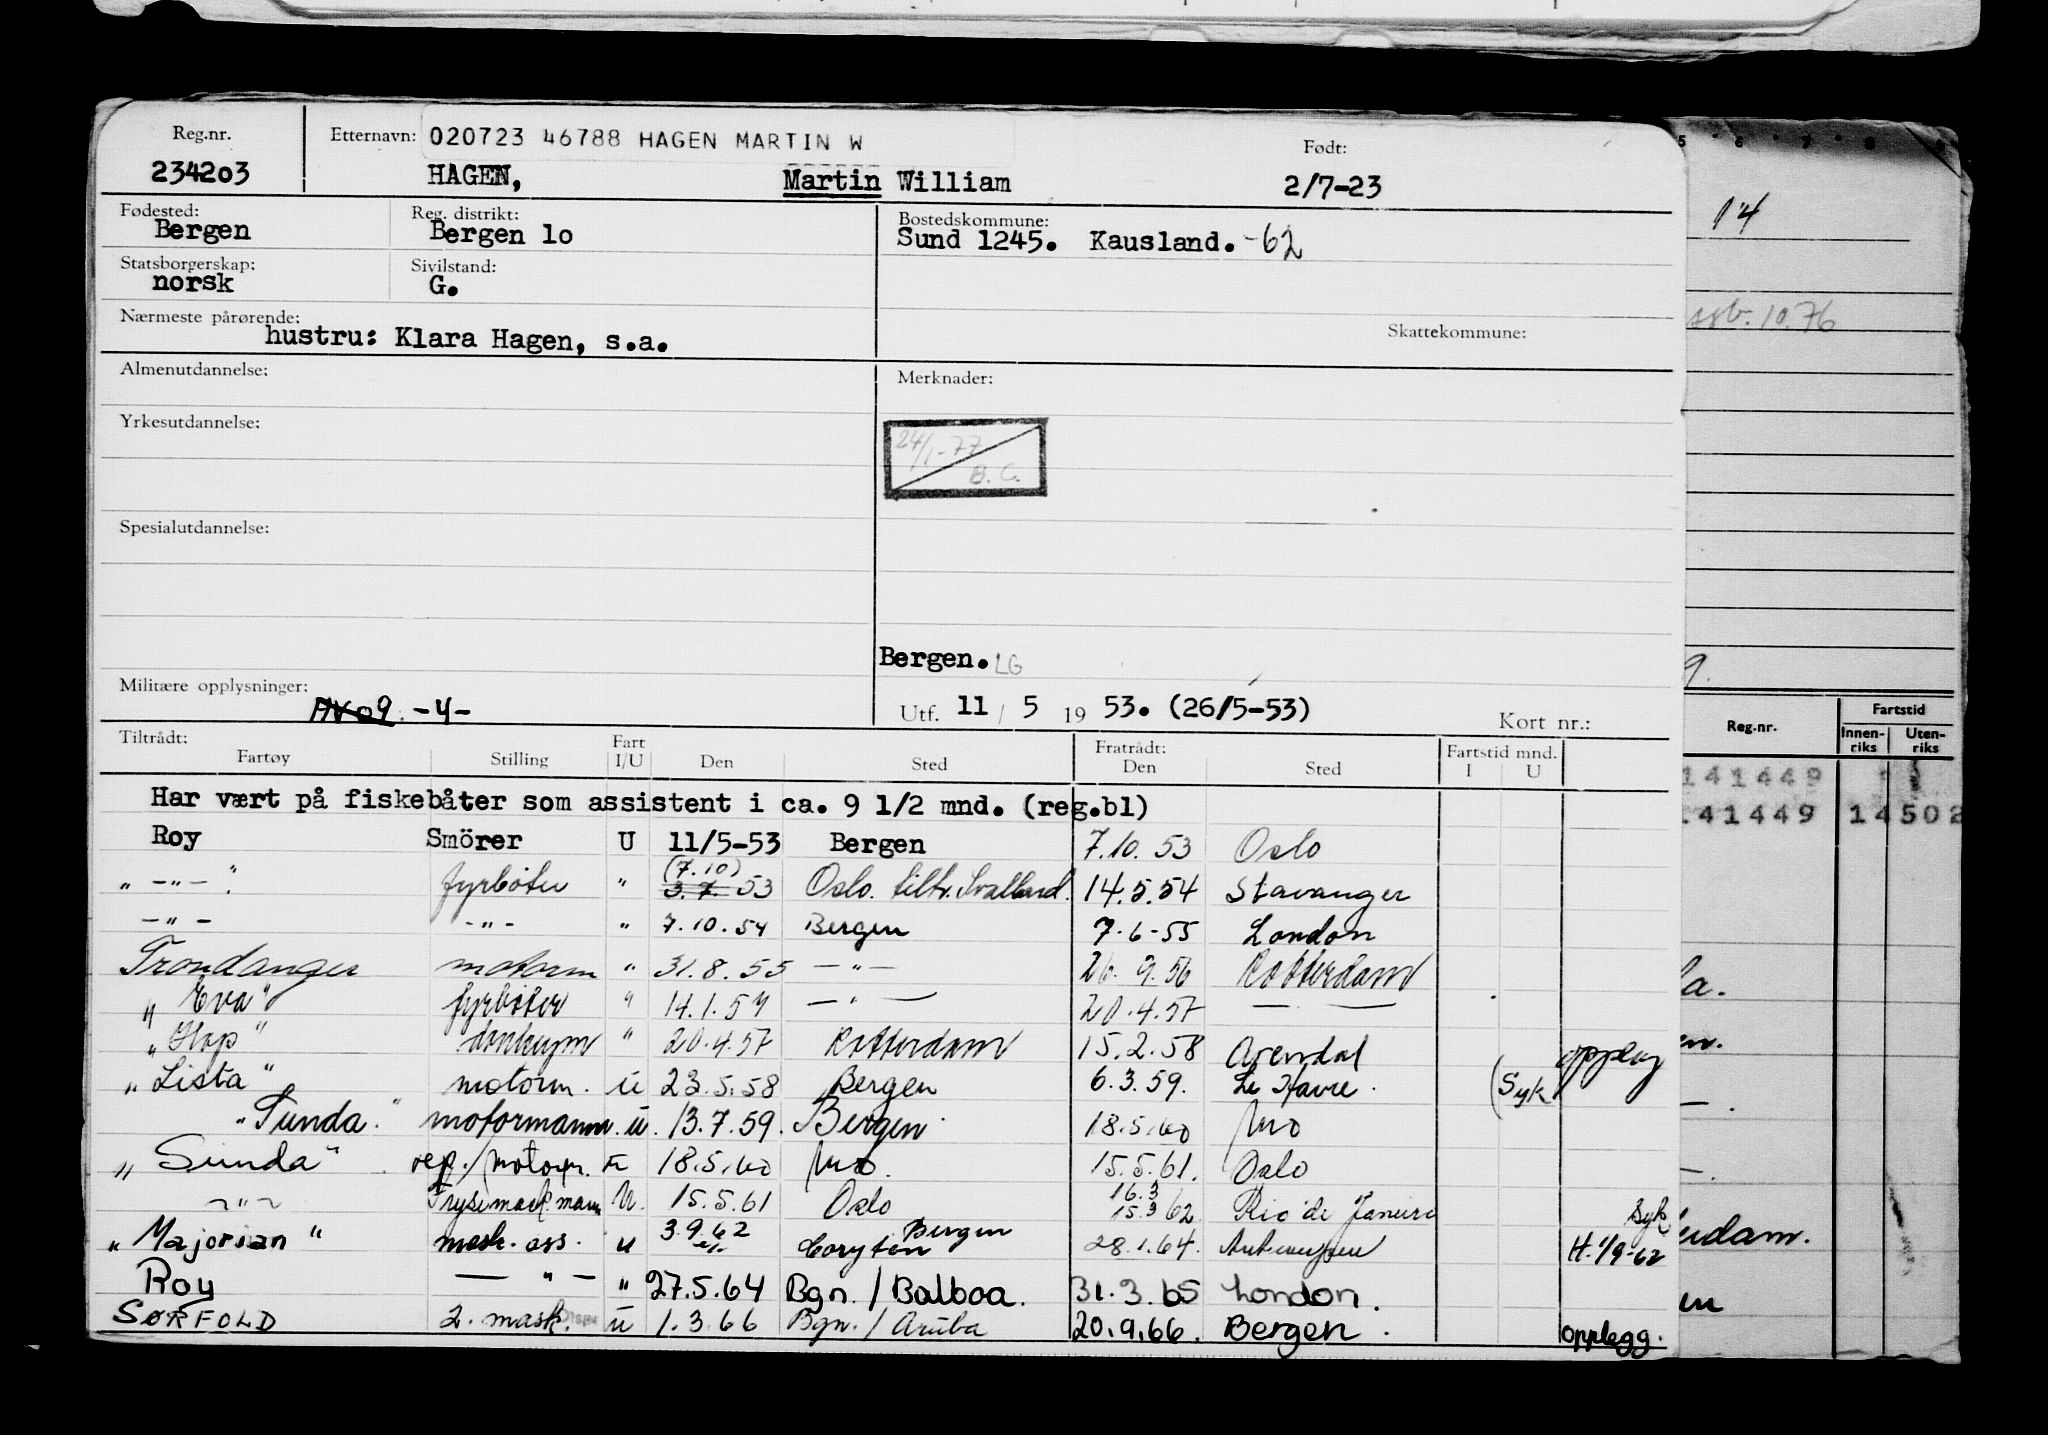 Reg.nr. Etternavn: 020723 46788 HAGEN MARTIN W Født:
234203 HAGEN, Martin William 2/7-23
Fødested: Reg. distrikt: Bostedskommune:
Bergen Bergen lo Sund 1245. Kausland. -62
Statsborgerskap: Sivilstand:
norsk G.
Nærmeste pårørende: Skattekommune:
hustru: Klara Hagen, s.a.
Almenutdannelse: Merknader:
Yrkesutdannelse:
24/1-77
B.C.
Spesialutdannelse:
Bergen. LG
Militære opplysninger:
-4- Utf. 11 / 5 19 53. (26/5-53) Kort nr.:
Tiltrådt: Fart Fratrådt: Fartstid mnd.
Fartøy Stilling I/U Den Sted Den Sted I U
Har vært på fiskebåter som assistent i ca. 9 1/2 mnd. (reg.bl)
Roy Smörer U 11/5-53 Bergen 7.10.53 Oslo
" -"- " fyrbøter " (7.10) 3.7. 53 Oslo. tiltr. Svalbard. 14.5.54 Stavanger
-"- -"- " 7.10.54 Bergen 7.6-55 London
Trondanger motorm " 31.8.55 -"- 26.9.56 Rotterdam
"Eva" fyrbøter " 14.1.57 -"- 20.4.57 -
"Hop" donkeym " 20.4.57 Rotterdam 15.2.58 Arendal opplag
"Lista" motorm. u 23.5.58 Bergen 6.3.59. Le Havre. (Syk
"Sunda." motormann. u. 13.7.59. Bergen 18.5.60
"Sunda" rep./motorm. 18.5.60 15.5.61. Oslo
-"- Frysemask.mann U. 15.5.61 Oslo 16.3 15.3 62 Rio de Janeiro Syk
"Majorian" mask. ass. u 3.9.62 Coryton Bergen 28.1.64. Antwerpen H. 1/9-62
Roy -"- " 27.5.64 Bgn. / Balboa. 31.3.65 London.
SØRFOLD 2. mask. Disp u 1.3.66 Bgn. / Aruba 20.9.66. Bergen. opplegg.
5 6 7 8 9
14
10.76
9.
Reg.nr. Fartstid
Innen-riks Uten-riks
141449 1
141449 14502